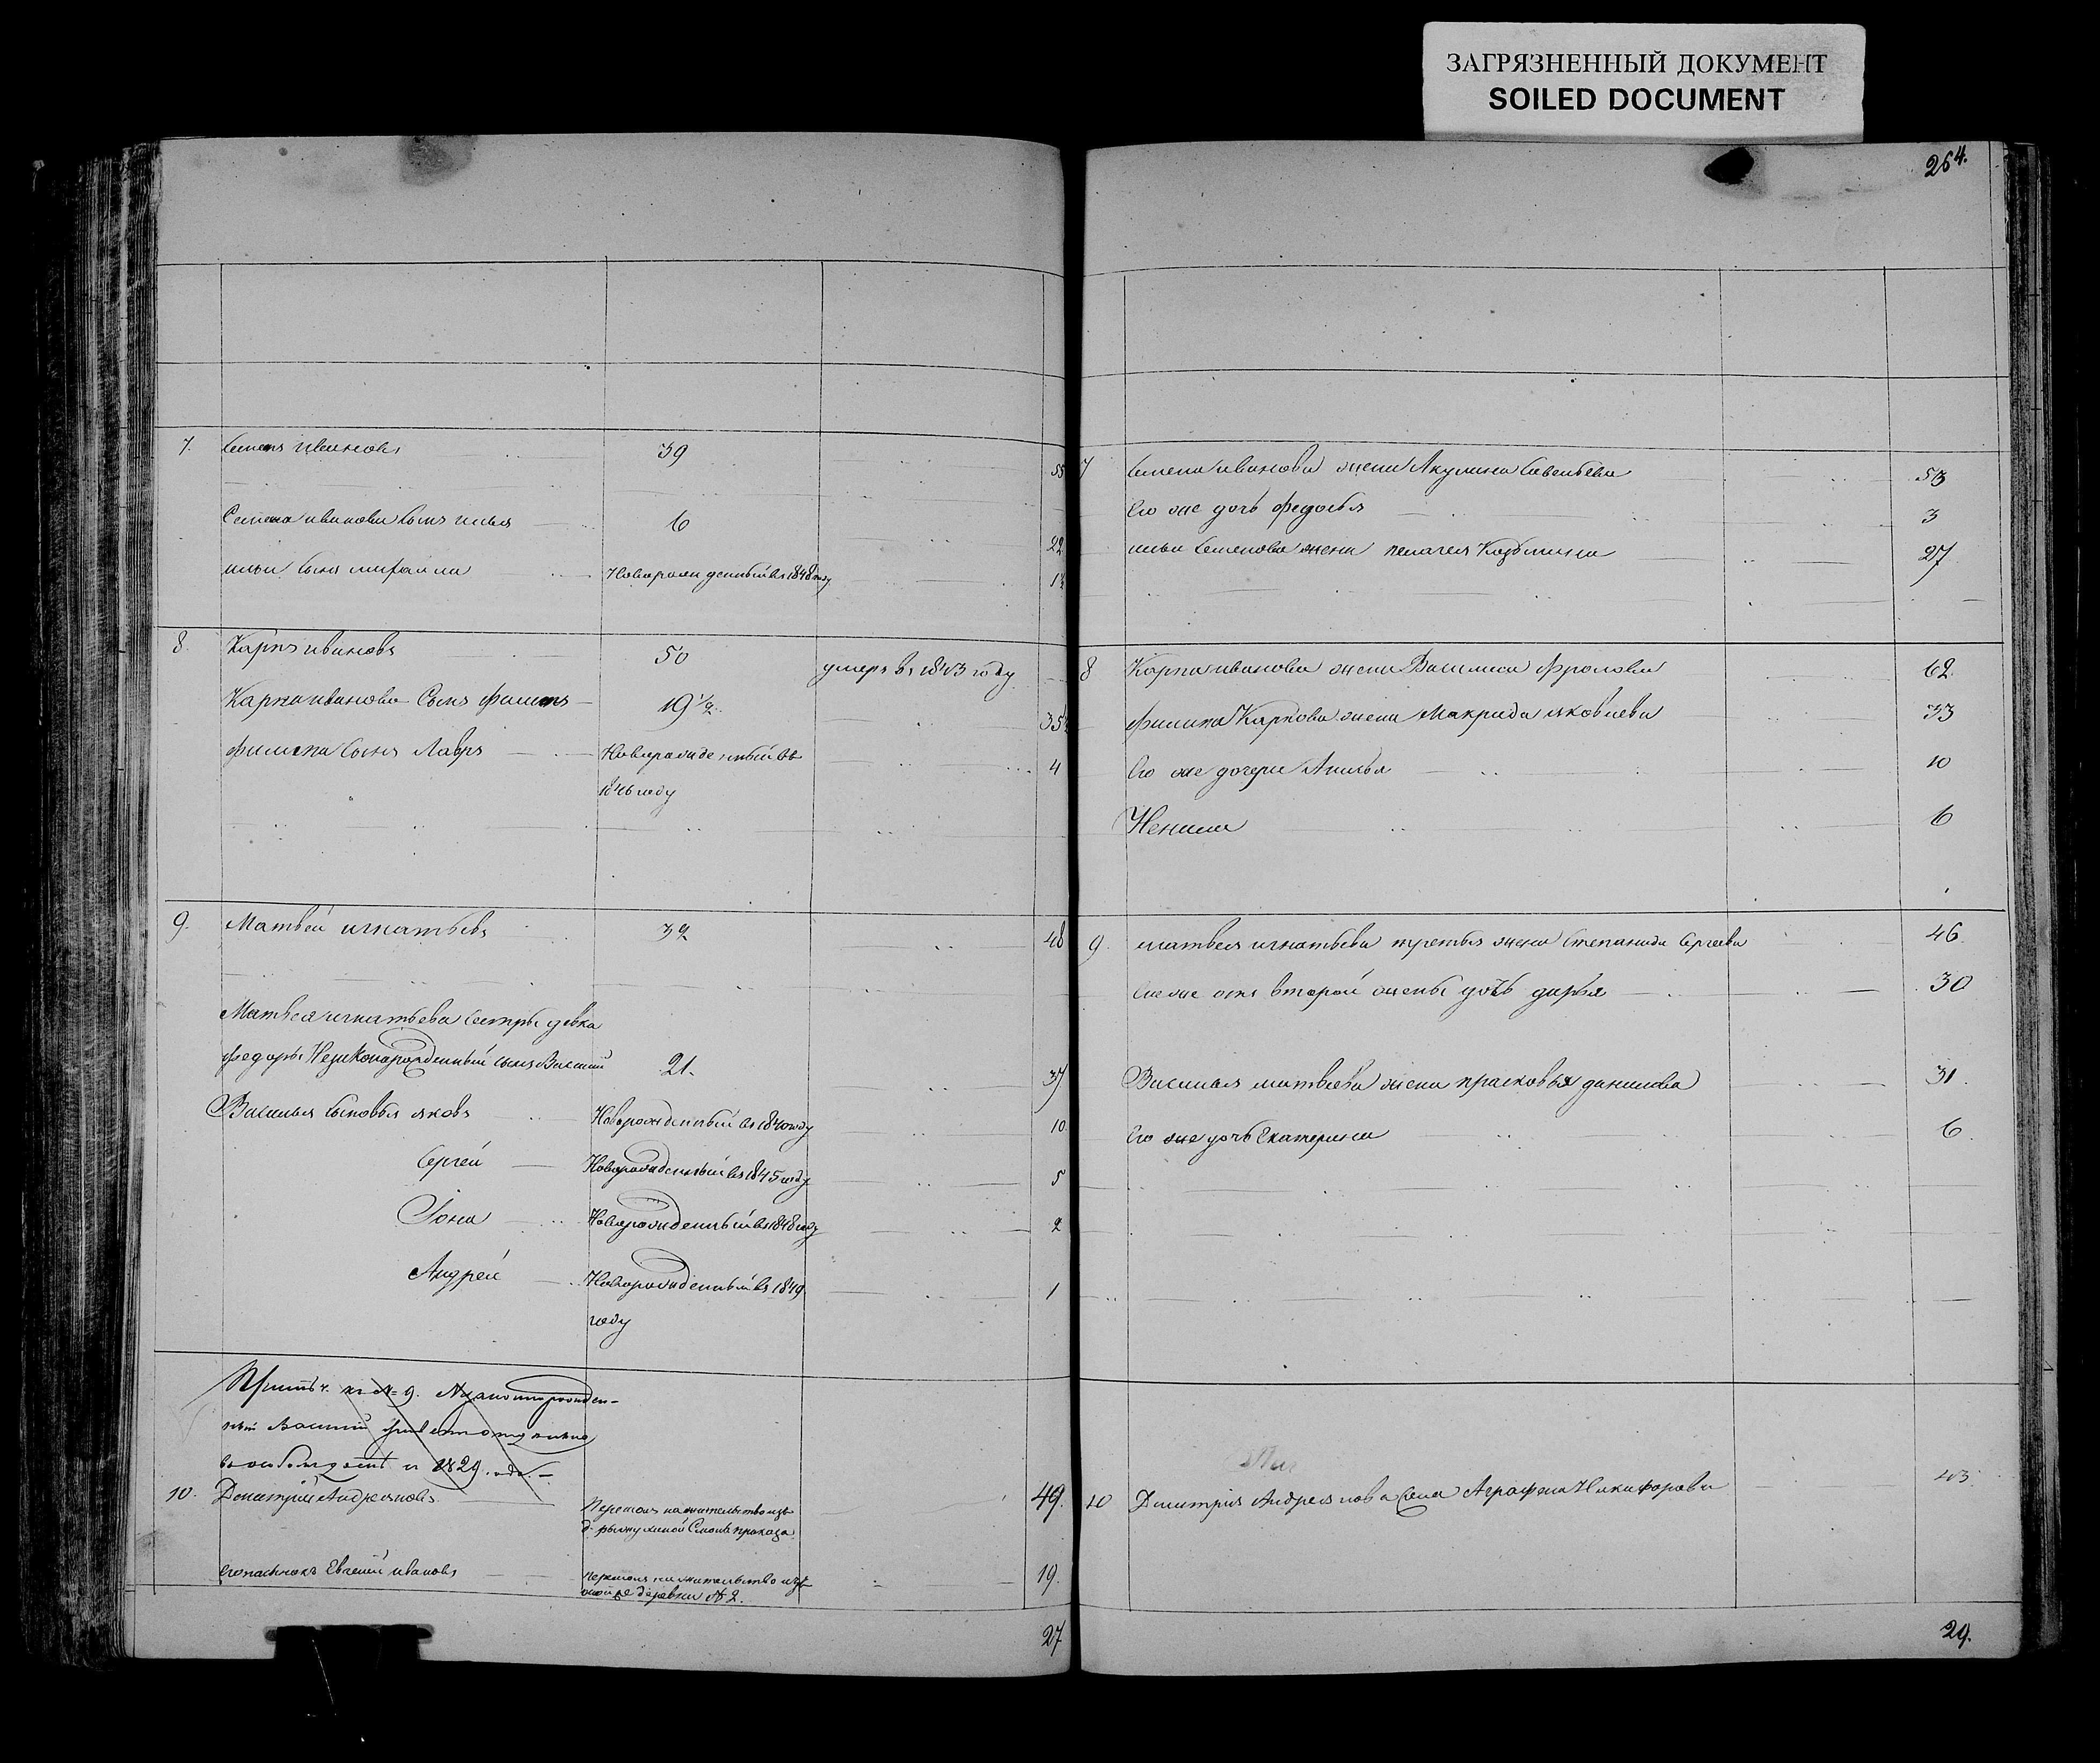 ЗАГРЯЗНЕННЫЙ ДОКУМЕНТ
SOILED DOCUMENT
7. Семенъ Ивановъ 39 55
Семена иванова сынъ илья 6 22
ильи сынъ михаила Новорожденный въ 1848 году 1½
8. Карпъ ивановъ 50 умеръ въ 1843 году
Карпа иванова Сынъ Филипъ 19 ½ 35½
филипа Сынъ Лавръ Новорожденный въ 4
1846 году
9. Матвей игнатьевъ 32 48
Матвея игнатьева сестры девки
федоры Незаконнорожденный сынъ Василий 21. 37
Василья сыновья яковъ Новорожденный въ 1840 году 10
Сергей Новорожденный въ 1845 году 5
Iона Новорожденный въ 1848 году 2
Андрей Новорожденный въ 1849 1
году
къ № 9.
Василий
1829
10. Дмитрий Андреяновъ Перешолъ на жительство изъ 49.
д.
Евгений ивановъ перешолъ на жительство изъ 19.
деревни № 2.
27
264.
7 Семена иванова жена Акулина Савельева 53
Его же дочь федосья 3
ильи Семенова жена пелагея Кузьмина 27
8 Карпа иванова жена Василиса Фролова 62.
филипа Карпова жена Макрида яковлева 33
Его же дочери Анисья 10
Ненила 6
9. матвея игнатьева третья жена Степанида Сергеева 46.
Его же отъ второй жены дочь дарья 30
Василья матвеева жена прасковья данилова 31.
Его же дочь Екатерина 6.
10 Дмитрия Андреянова Аграфена Никифорова 43
29.